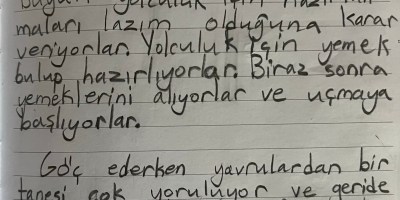 için
maları lazım olduğuna karar
veriyorlar. Yolculuk için yemek
bulup hazırlıyorlar. Biraz sonra
yemeklerini alıyorlar ve uçmaya
başlıyorlar.
Göç ederken yavrulardan bir
tanesi çok yoruluyor ve geride